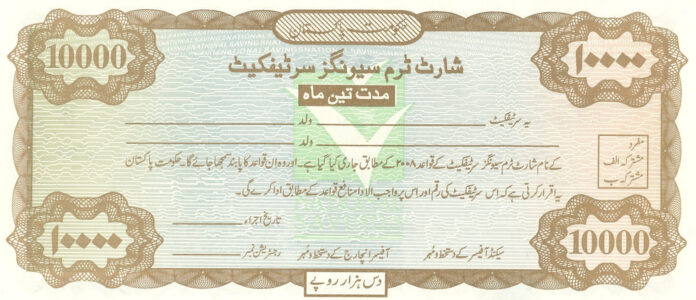 حکومت پاکستان
10000 ۱۰۰۰۰
شارٹ ٹرم سیونگز سرٹیفکیٹ
مدت تین ماہ
یہ سرٹیفکیٹ ولد
ولد
مفرد
مشترکہ الف
مشترکہ ب
کے نام شارٹ ٹرم سیونگز سرٹیفکیٹ کے قواعد ۲۰۰۸ کے مطابق جاری کیا گیا ہے۔ اور وہ ان قواعد کا پابند سمجھا جائے گا۔ حکومت پاکستان
یہ اقرار کرتی ہے کہ اس سرٹیفکیٹ کی رقم اور اس پر واجب الادا منافع قواعد کے مطابق ادا کرے گی۔
تاریخ اجراء
سیکنڈ آفیسر کے دستخط و مُہر آفیسر انچارج کے دستخط و مُہر رجسٹریشن نمبر
۱۰۰۰۰ 10000
دس ہزار روپے